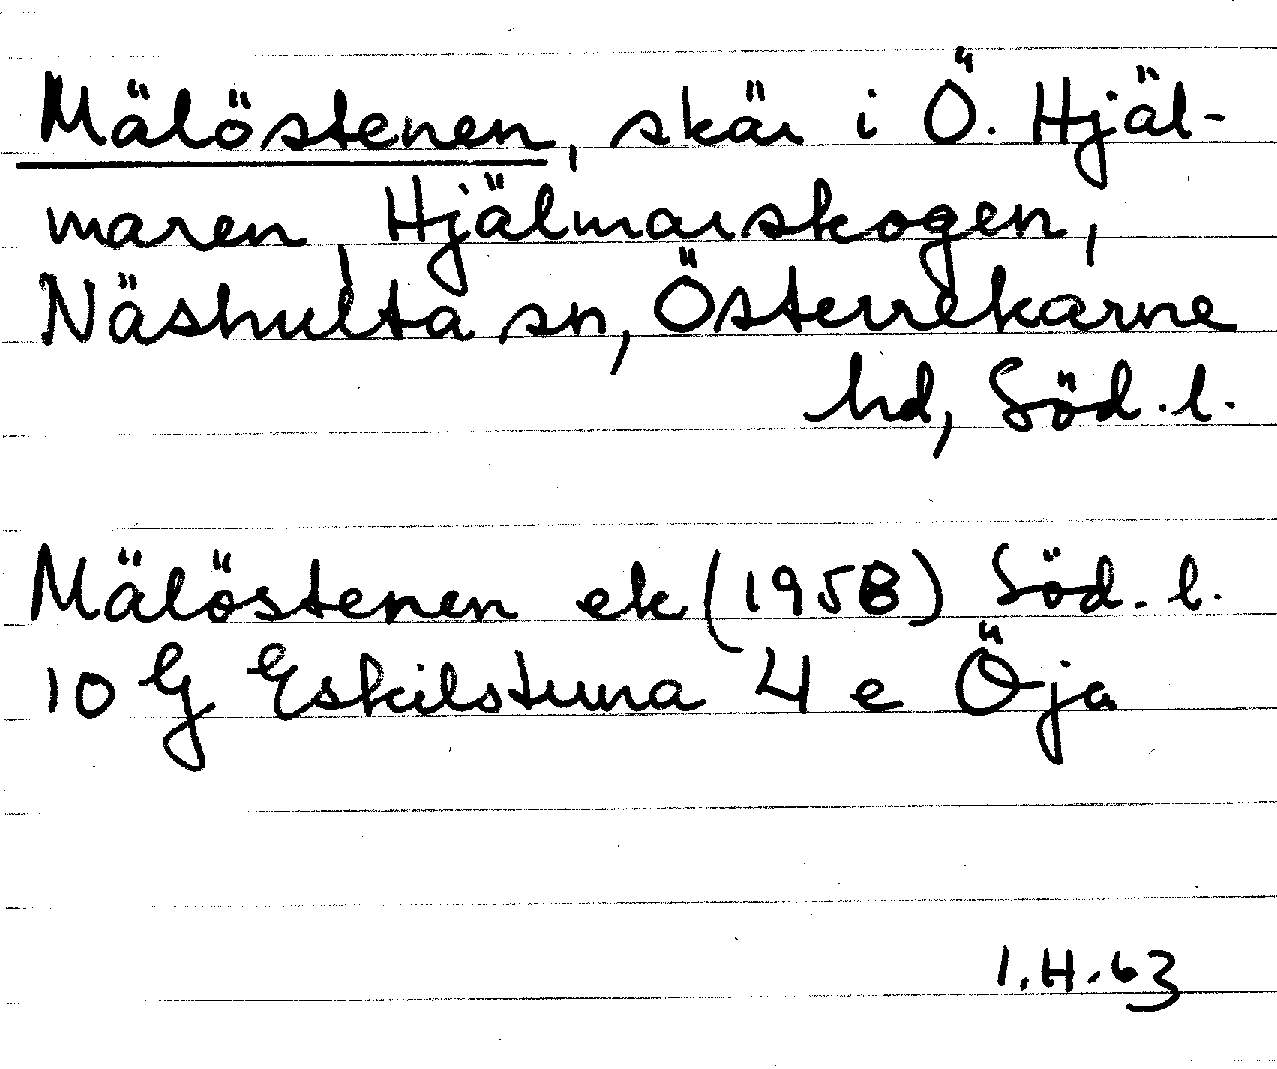 Mälöstenen, skär i Ö. Hjäl-
maren, Hjälmarskogen,
Näshulta sn, Österrekarne
hd, Söd.l.
Mälöstenen ek (1958) Söd.l.
10 G Eskilstuna 4 e Öja
I.H.63